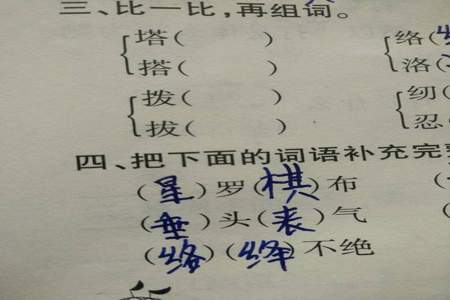 三、比一比,再组词。
塔( ) 络(
搭( ) 洛(
拨( ) 纫(
拔( ) 忍(
四、把下面的词语补充完
(星)罗(棋)布 (
(垂)头(丧)气 (
(络)(绎)不绝